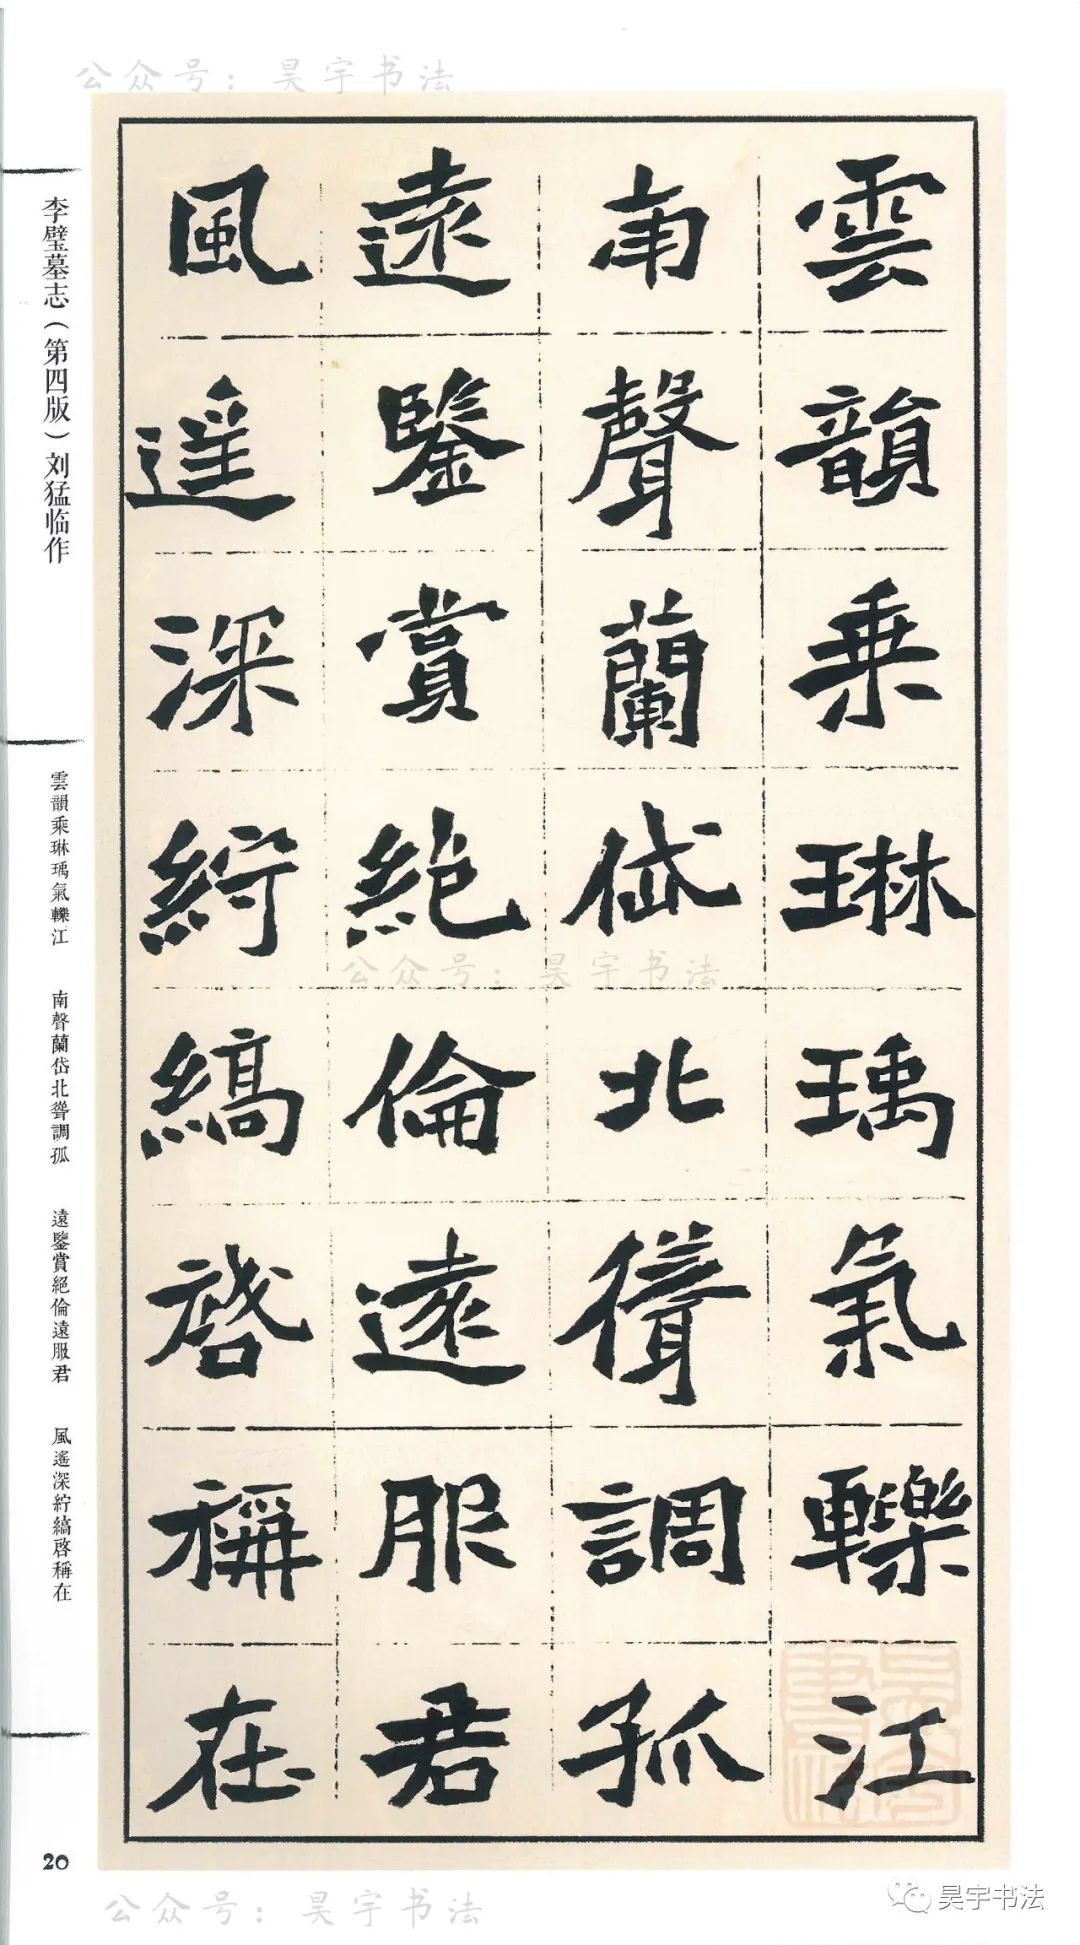 公众号：昊宇书法
雲韻乘琳瑀氣轢江
南聲蘭岱北聳調孤
遠鑒賞絕倫遠服君
風遙深紵縞啓稱在
李璧墓志（第四版）刘猛临作
雲韻乘琳瑀氣轢江
南聲蘭岱北聳調孤
遠鑒賞絕倫遠服君
風遙深紵縞啓稱在
20
公众号：昊宇书法
公众号：昊宇书法
昊宇书法